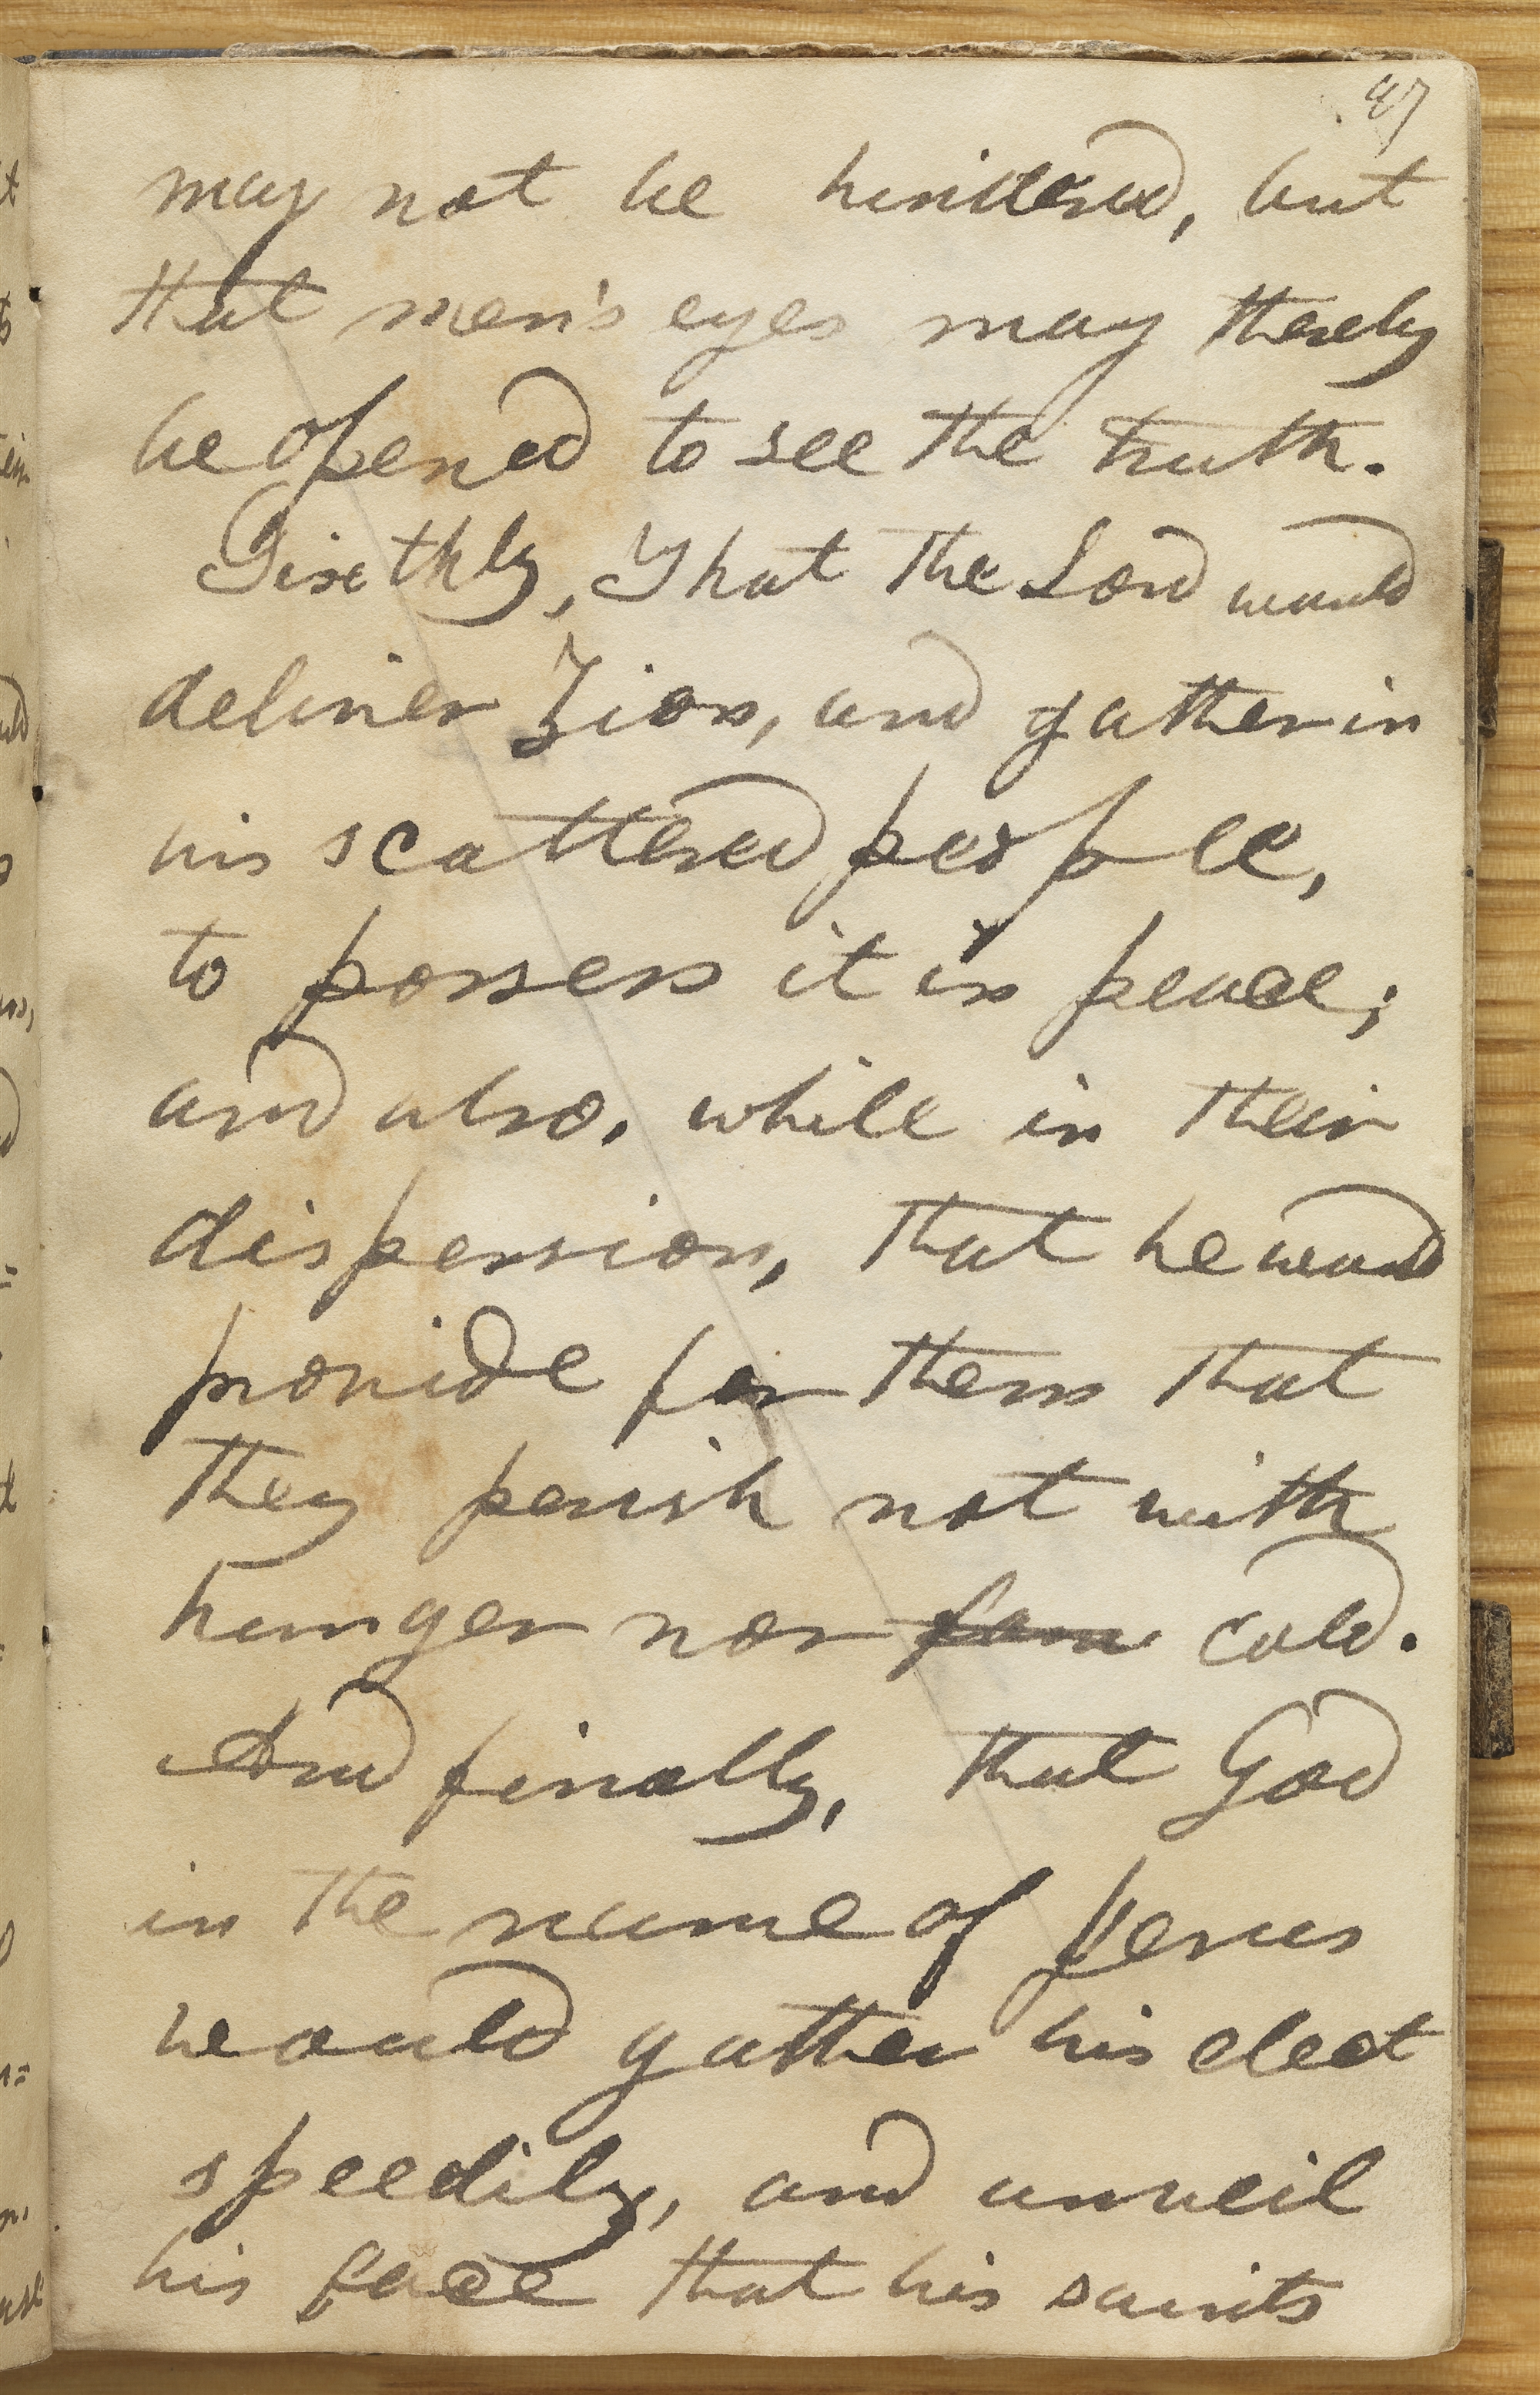 87
may not be hindered, but
that men's eyes may thereby
be opened to see the truth.
Sixthly, That the Lord would
deliver Zion, and gather in
his scattered people,
to possess it in peace;
and also, while in their
dispersion, that he would
provide for them that
they perish not with
hunger nor fam cold.
And finally, that God
in the name of Jesus
would gather his elect
speedily, and unveil
his face that his saints